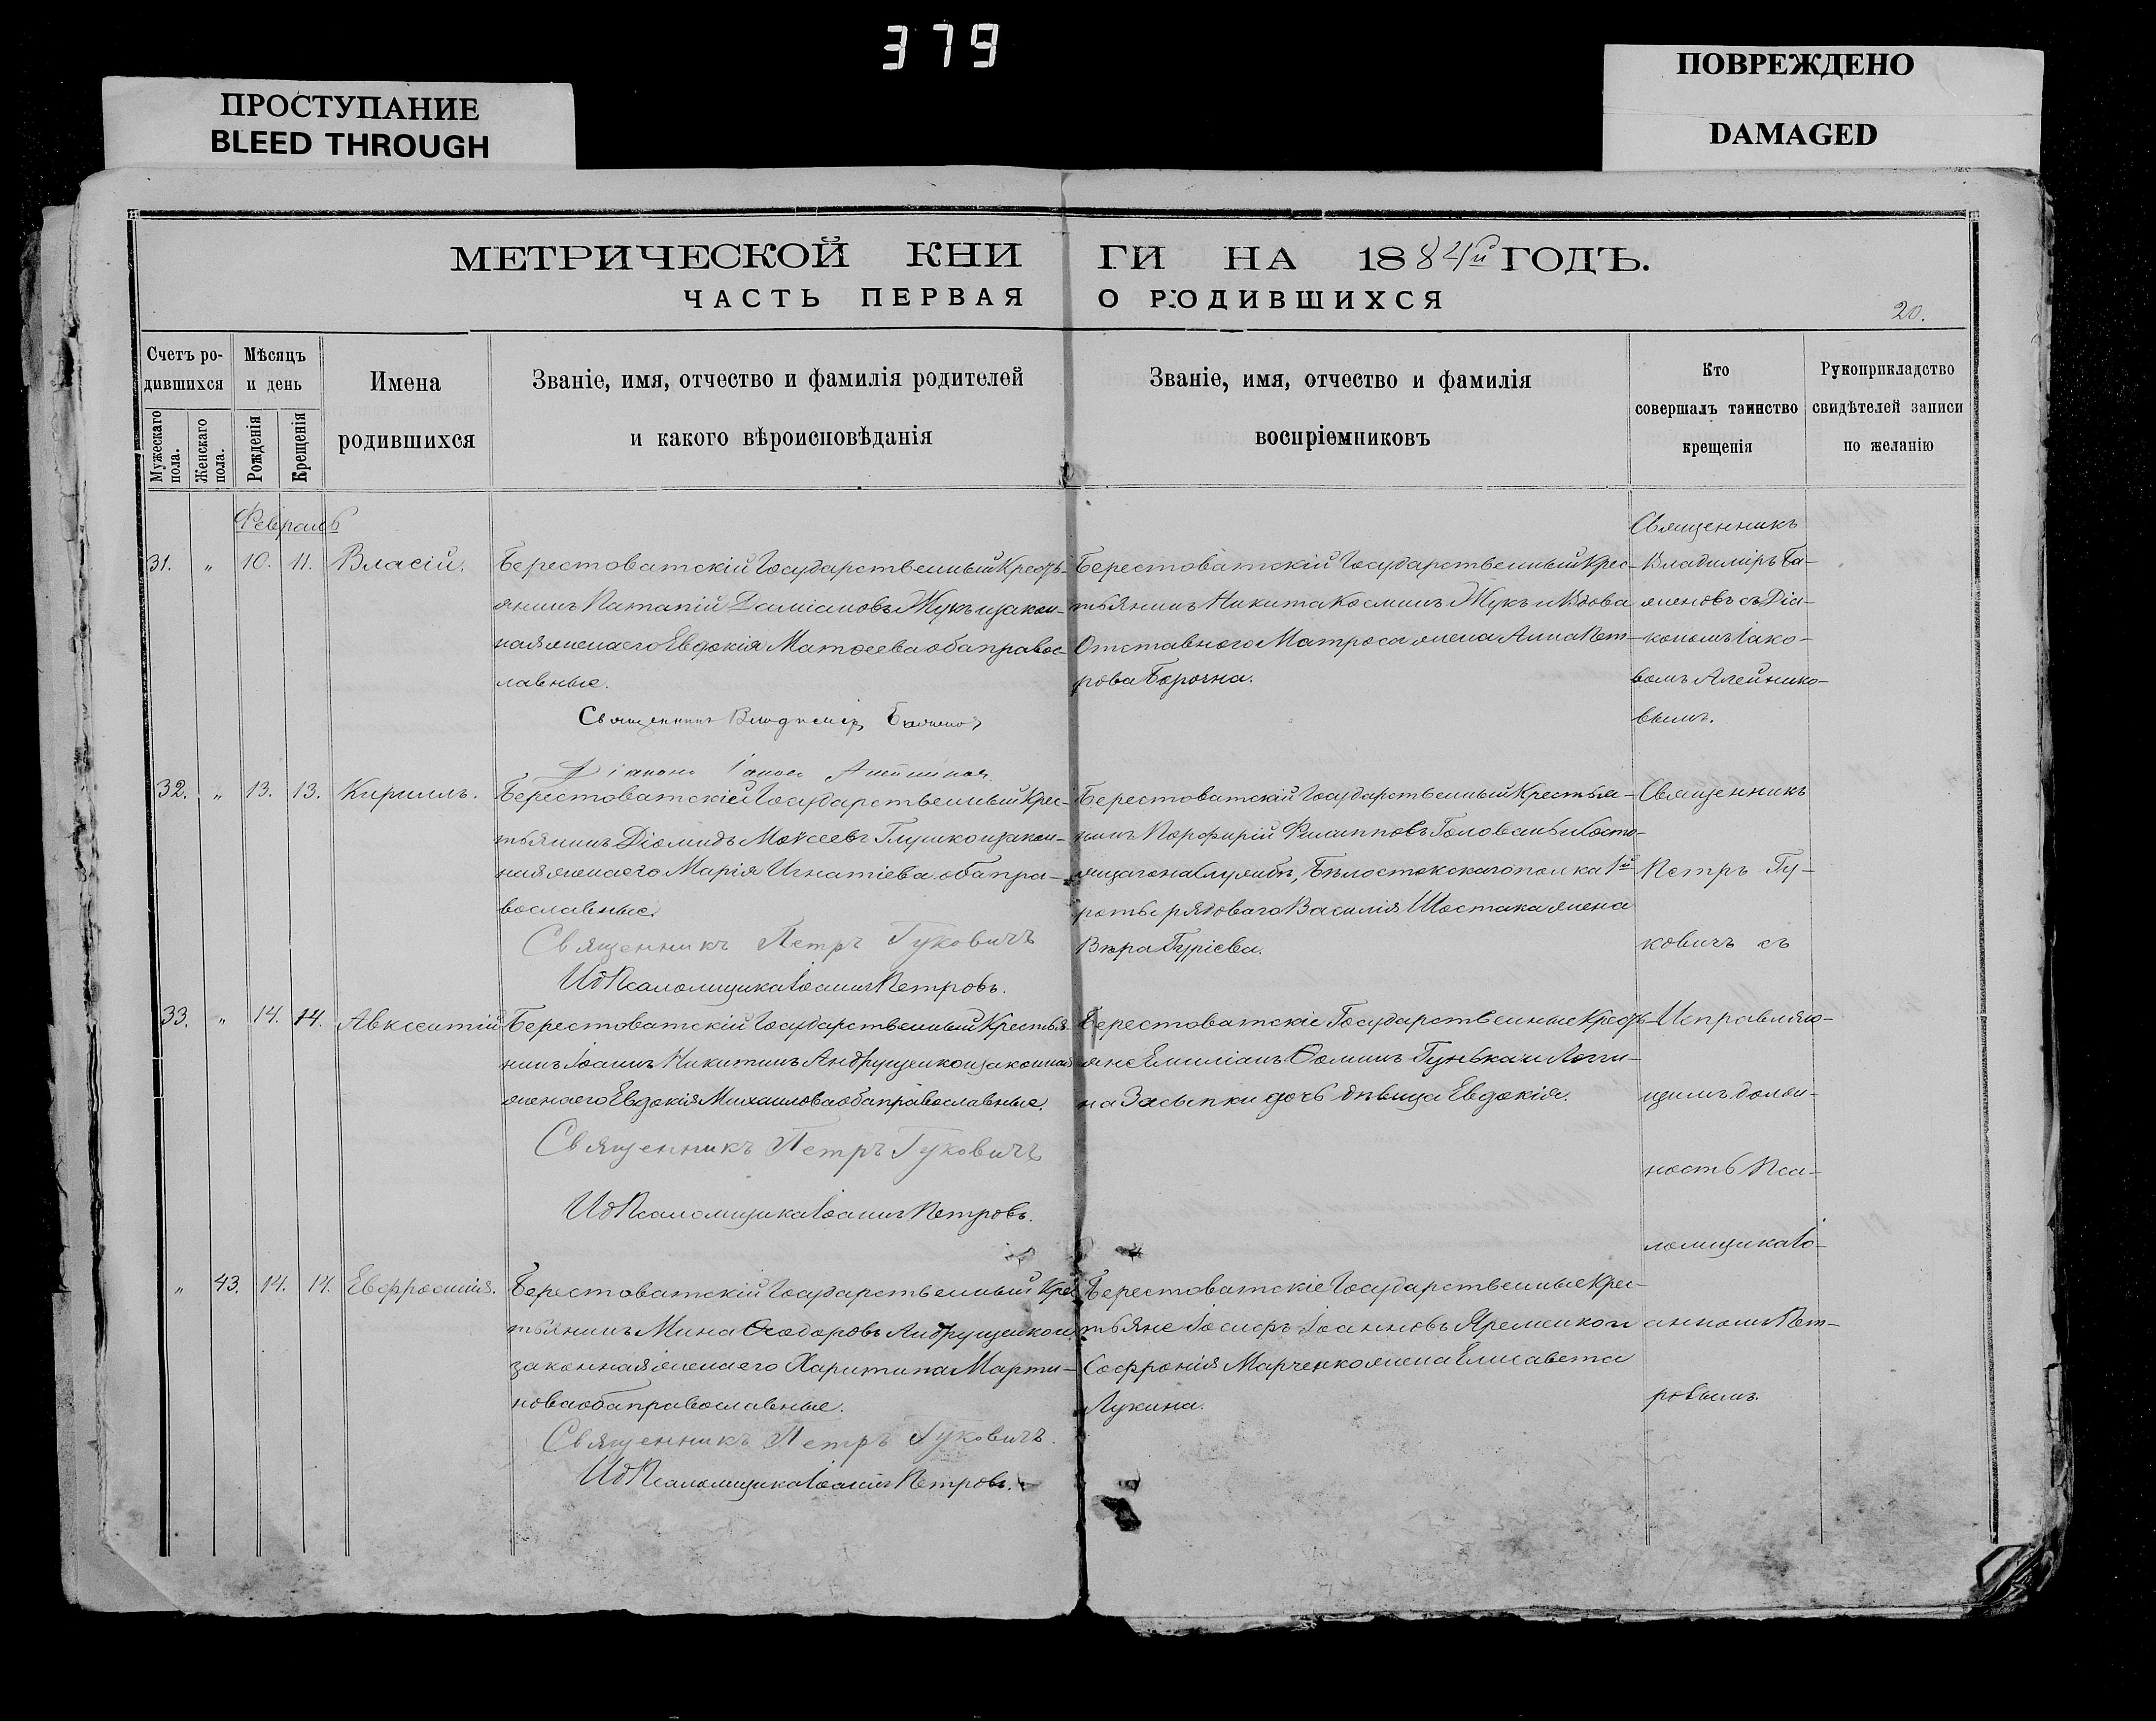 379
ПРОСТУПАНИЕ
BLEED THROUGH
ПОВРЕЖДЕНО
DAMAGED
МЕТРИЧЕСКОЙ КНИГИ НА 1884й ГОДЪ.
ЧАСТЬ ПЕРВАЯ О РОДИВШИХСЯ
20.
Счетъ ро-
дившихся
Мужескаго пола.
Женскаго пола.
Мѣсяцъ
и день
Рожденія
Крещенія
Имена
родившихся
Званіе, имя, отчество и фамилія родителей
и какого вѣроисповѣданія
Званіе, имя, отчество и фамилія
воспріемниковъ
Кто
совершалъ таинство
крещенія
Рукоприкладство
свидѣтелей записи
по желанію
Февраль
31. " 10. 11. Власій.
Берестоватскій Государственный Кресть-
янинъ Патапій Даміановъ Жукъ и закон-
ная жена его Евдокія Матѳеева оба правос-
лавные.
Священникъ Владиміръ Баженовъ
Діаконъ Іаковъ Алейниковъ
Берестоватскій Государственный Крес-
тьянинъ Никита Косминъ Жукъ и Вдова
Отставного Матроса жена Анна Пет-
рова
Священникъ
Владиміръ Ба-
женовъ съ Діа-
кономъ Іако-
вомъ Алейнико-
вымъ.
32. " 13. 13. Кириллъ.
Берестоватскій Государственный Крес-
тьянинъ Діомидъ Моѵсеевъ Глушко и закон-
ная жена его Марія Игнатіева оба пра-
вославные.
Священникъ Петръ Гуковичъ
ИдПсаломщика Іоаннъ Петровъ.
Берестоватскій Государственный Крестья-
нинъ Порфирій Филипповъ Головань и Состо-
ящаго на Службѣ, Бѣлостокскаго полка 1й
роты рядоваго Василія Шостака жена
Вѣра Гуріева.
Священникъ
Петръ Гу-
ковичъ съ
33. " 14. 14. Авксентій
Берестоватскій Государственный Крестья-
нинъ Іоаннъ Никитинъ Андрущенко и законная
жена его Евдокія Михаилова оба православные.
Священникъ Петръ Гуковичъ
ИдПсаломщика Іоаннъ Петровъ.
Берестоватскіе Государственные Кресть-
яне Емиліанъ Ѳоминъ Гунька и Логги-
на Засыпки дочь дѣвица Евдокія.
Исправляю-
щимъ долж-
ность Пса-
ломщика Іо-
" 43. 14. 14. Евфросинія.
Берестоватскій Государственный Крес-
тьянинъ Мина Ѳеодоровъ Андрущенко и
законная жена его Харитина Марти-
нова оба православные.
Священникъ Петръ Гуковичъ.
ИдПсаломщика Іоаннъ Петровъ.
Берестоватскіе Государственные Крес-
тьяне Іосифъ Іоанновъ Яременко и
Софронія Марченко жена Елисавета
Лукина.
анномъ Пет-
ровымъ.